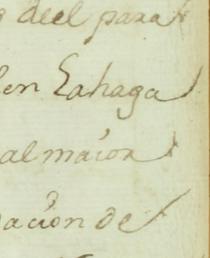 deel para
en Lahaga
al maior
acion de